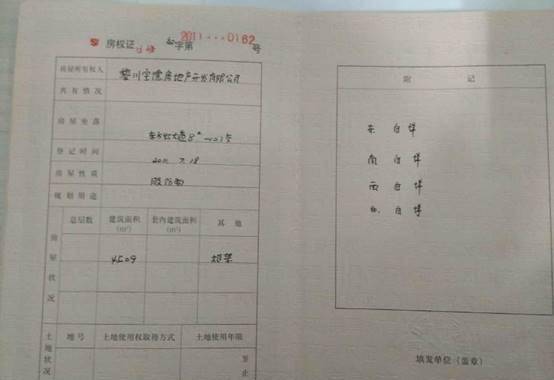 房权证 字第 2011···0162 号
房屋所有权人 房地产开发有限公司
共有情况
房屋坐落
登记时间 2011.7.18
房屋性质
规划用途
房屋状况
总层数 建筑面积(m²) 套内建筑面积(m²) 其他
4509 框架
土地状况
地号 土地使用权取得方式 土地使用年限
至
止
附 记
东 自墙
南 自墙
西 自墙
北 自墙
填发单位（盖章）